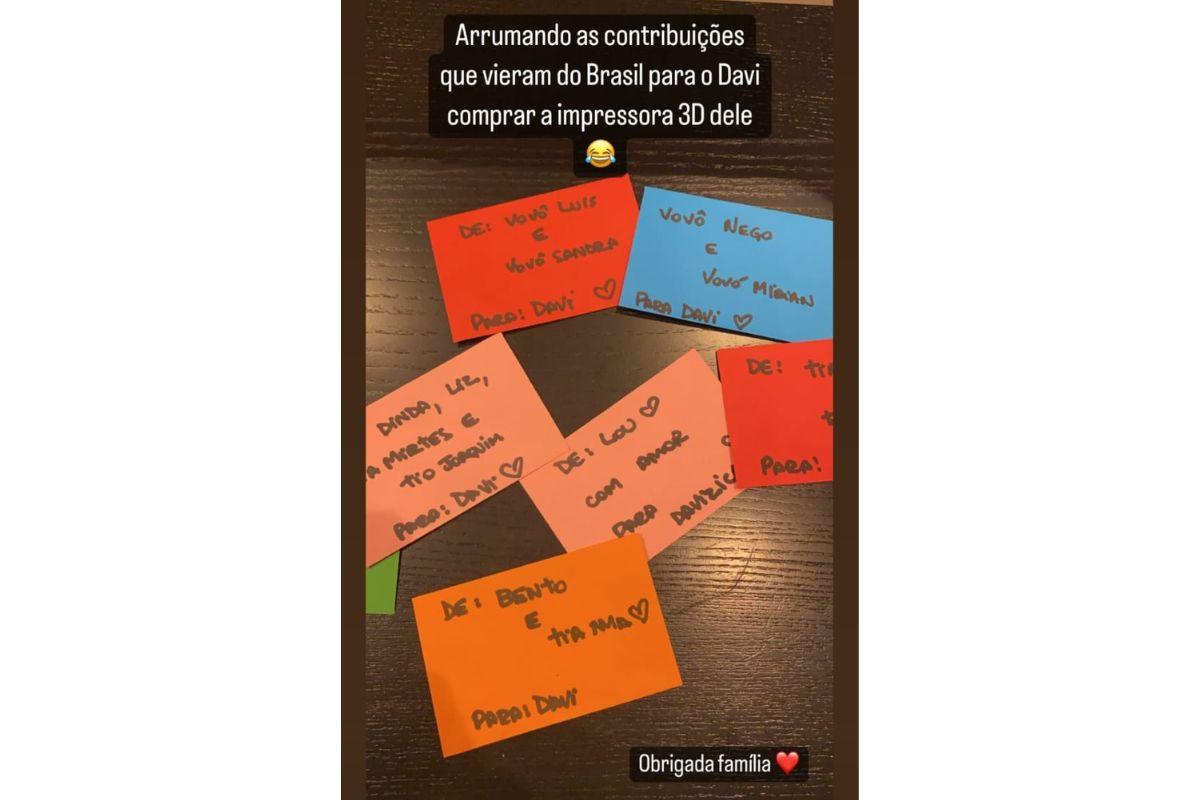 Arrumando as contribuições
que vieram do Brasil para o Davi
comprar a impressora 3D dele
😂
DE: VOVÔ LUIS
E
VOVÓ SANDRA
PARA: DAVI ♡
VOVÔ NEGO
E
VOVÓ MÍRIAN
PARA DAVI ♡
DINDA, LIZ,
MIRTES E
TIO JOAQUIM
PARA: DAVI ♡
DE: LOU ♡
COM AMOR
PARA
DE:
PARA:
DE: BENTO
E
TIA ♡
PARA: DAVI
Obrigada família ❤️